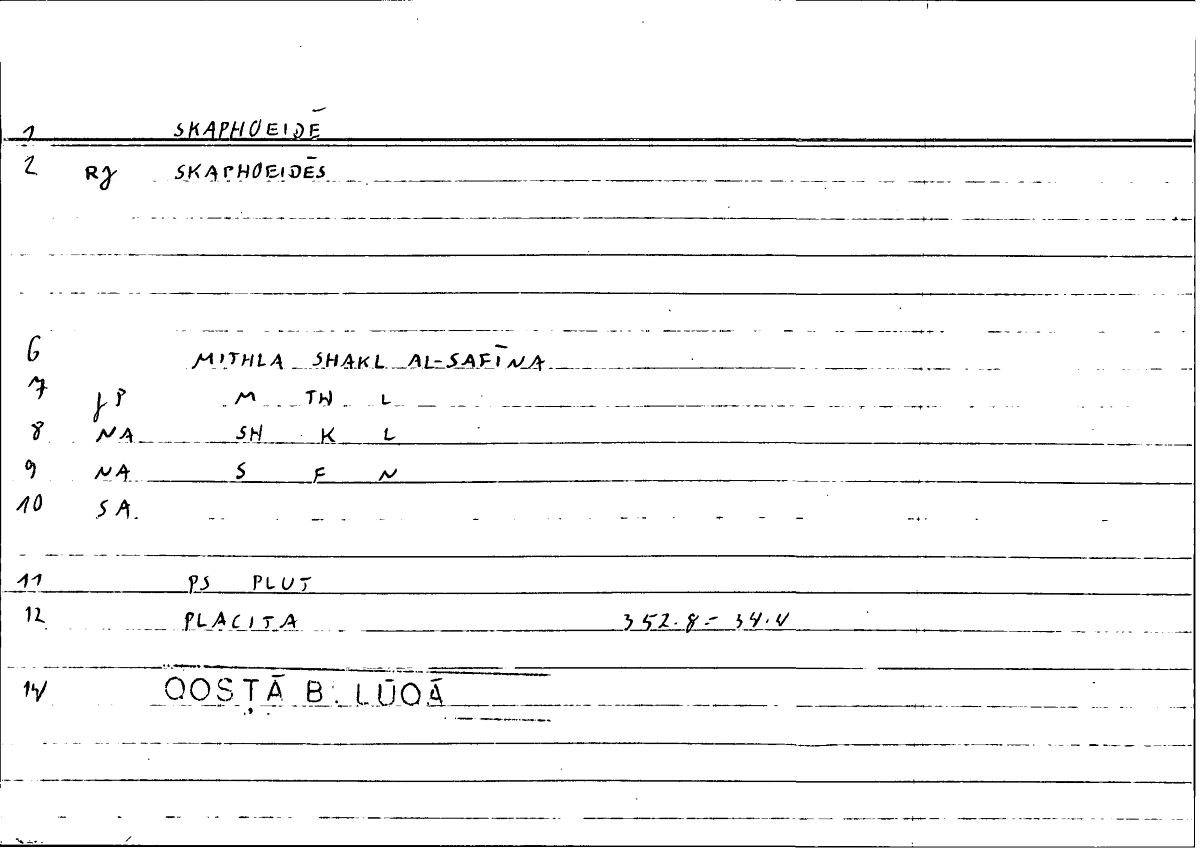 1 SKAPHOEIDĒ
2 RJ SKAPHOEIDĒS
6 MITHLA SHAKL AL-SAFĪNA
7 JP M TH L
8 NA SH K L
9 NA S F N
10 SA.
11 PS PLUT
12 PLACITA 352.8 = 34.4
14 QOSṬĀ B. LŪQĀ